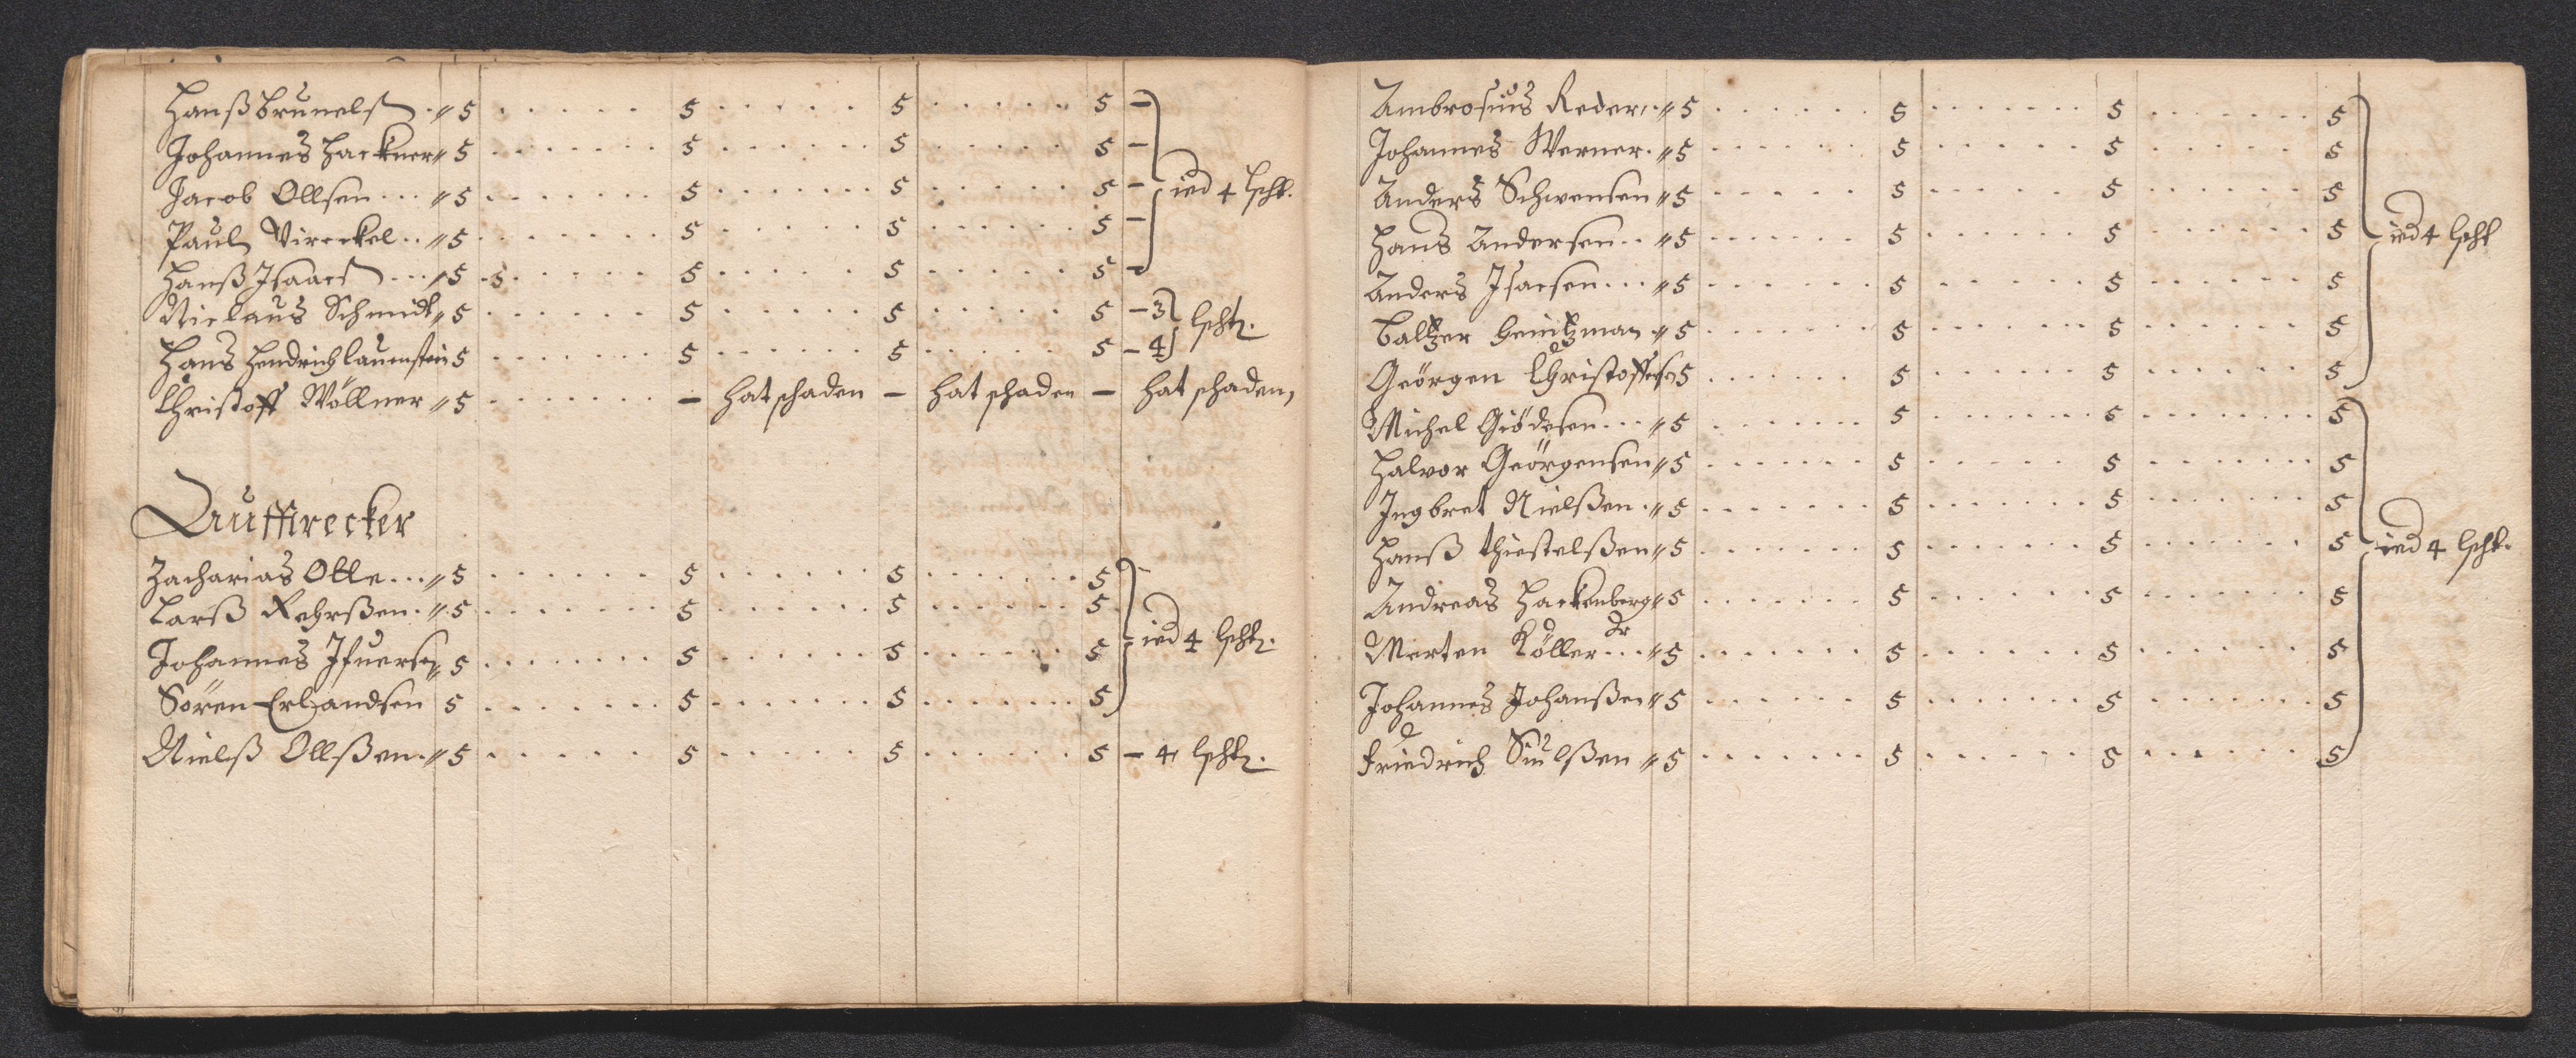 Hanß Brunels 〃 5 . . . . . 5 . . . . . 5 . . . . . 5 –
Johannes Hackner 〃 5 . . . . . 5 . . . . . 5 . . . . . 5 –
Jacob Ollsen . . . 〃 5 . . . . . 5 . . . . . 5 . . . . . 5 – ied 4 lschl.
Paul Vireckel . . 〃 5 . . . . . 5 . . . . . 5 . . . . . 5 –
Hanß Isaacs . . . 〃 5 . . . . . 5 . . . . . 5 . . . . . 5 –
Niclaus Schmidt 〃 5 . . . . . 5 . . . . . 5 . . . . . 5 – 3 lschl.
Hans Hendrich Lauenstein 5 . . . . . 5 . . . . . 5 . . . . . 5 – 4
Christoff Wöllner 〃 5 . . . . . – hat schaden – hat schaden – hat schaden,
Auffrecker
Zacharias Otte . . . 〃 5 . . . . . 5 . . . . . 5 . . . . . 5
Larß Rehrßen . 〃 5 . . . . . 5 . . . . . 5 . . . . . 5
Johannes Ifuersen 〃 5 . . . . . 5 . . . . . 5 . . . . . 5 ied 4 lschl.
Sören Erlandsen 5 . . . . . 5 . . . . . 5 . . . . . 5
Nielß Ollßen . 〃 5 . . . . . 5 . . . . . 5 . . . . . 5 – 4 lschl.
Ambrosius Reder . 〃 5 . . . . . 5 . . . . . 5 . . . . . 5
Johannes Werner . 〃 5 . . . . . 5 . . . . . 5 . . . . . 5
Anders Schwensen 〃 5 . . . . . 5 . . . . . 5 . . . . . 5
Hans Andersen . . 〃 5 . . . . . 5 . . . . . 5 . . . . . 5 ied 4 lschl
Anders Isacsen . . . 〃 5 . . . . . 5 . . . . . 5 . . . . . 5
Baltzer Heintzman 〃 5 . . . . . 5 . . . . . 5 . . . . . 5
Geörgen Christoffersen 5 . . . . . 5 . . . . . 5 . . . . . 5
Michel Giödesen . . . 〃 5 . . . . . 5 . . . . . 5 . . . . . 5
Halvor Geörgensen 〃 5 . . . . . 5 . . . . . 5 . . . . . 5
Ingbret Nielßen . 〃 5 . . . . . 5 . . . . . 5 . . . . . 5
Hanß Thiestelßen 〃 5 . . . . . 5 . . . . . 5 . . . . . 5 ied 4 lschl.
Andreas Hackenberg 〃 5 . . . . . 5 . . . . . 5 . . . . . 5
Merten Köller . . . 〃 5 . . . . . 5 . . . . . 5 . . . . . 5
Johannes Johanßen 〃 5 . . . . . 5 . . . . . 5 . . . . . 5
Friedrich Siulßen 〃 5 . . . . . 5 . . . . . 5 . . . . . 5